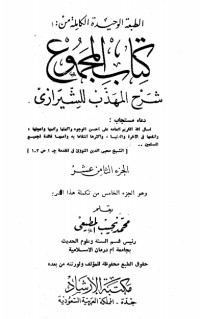 الطبعة الوحيدة الكاملة من:
كتاب المجموع
شرح المهذب للشيرازي
دعاء مستجاب:
اسأل الله الكريم اتمامه على أحسن الوجوه وأكملها وأتمها وأعجلها
وأنفعها في الآخرة والدنيا، وأكثرها انتفاعا به وأعمها فائدة لجميع
المسلمين ..
[ الشيخ محيى الدين النووى في المقدمة ج ١ ص
الجزء الثامن عشر
وهو الجزء الخامس من تكملة هذا
بقلم
محمد نجيب المطيعي
رئيس قسم السنة وعلوم الحديث
بجامعة أم درمان الإسلامية
حقوق الطبع محفوظة للمؤلف ولورثته من بعده
مكتبة الإرشاد
جدة - المملكة العربية السعودية